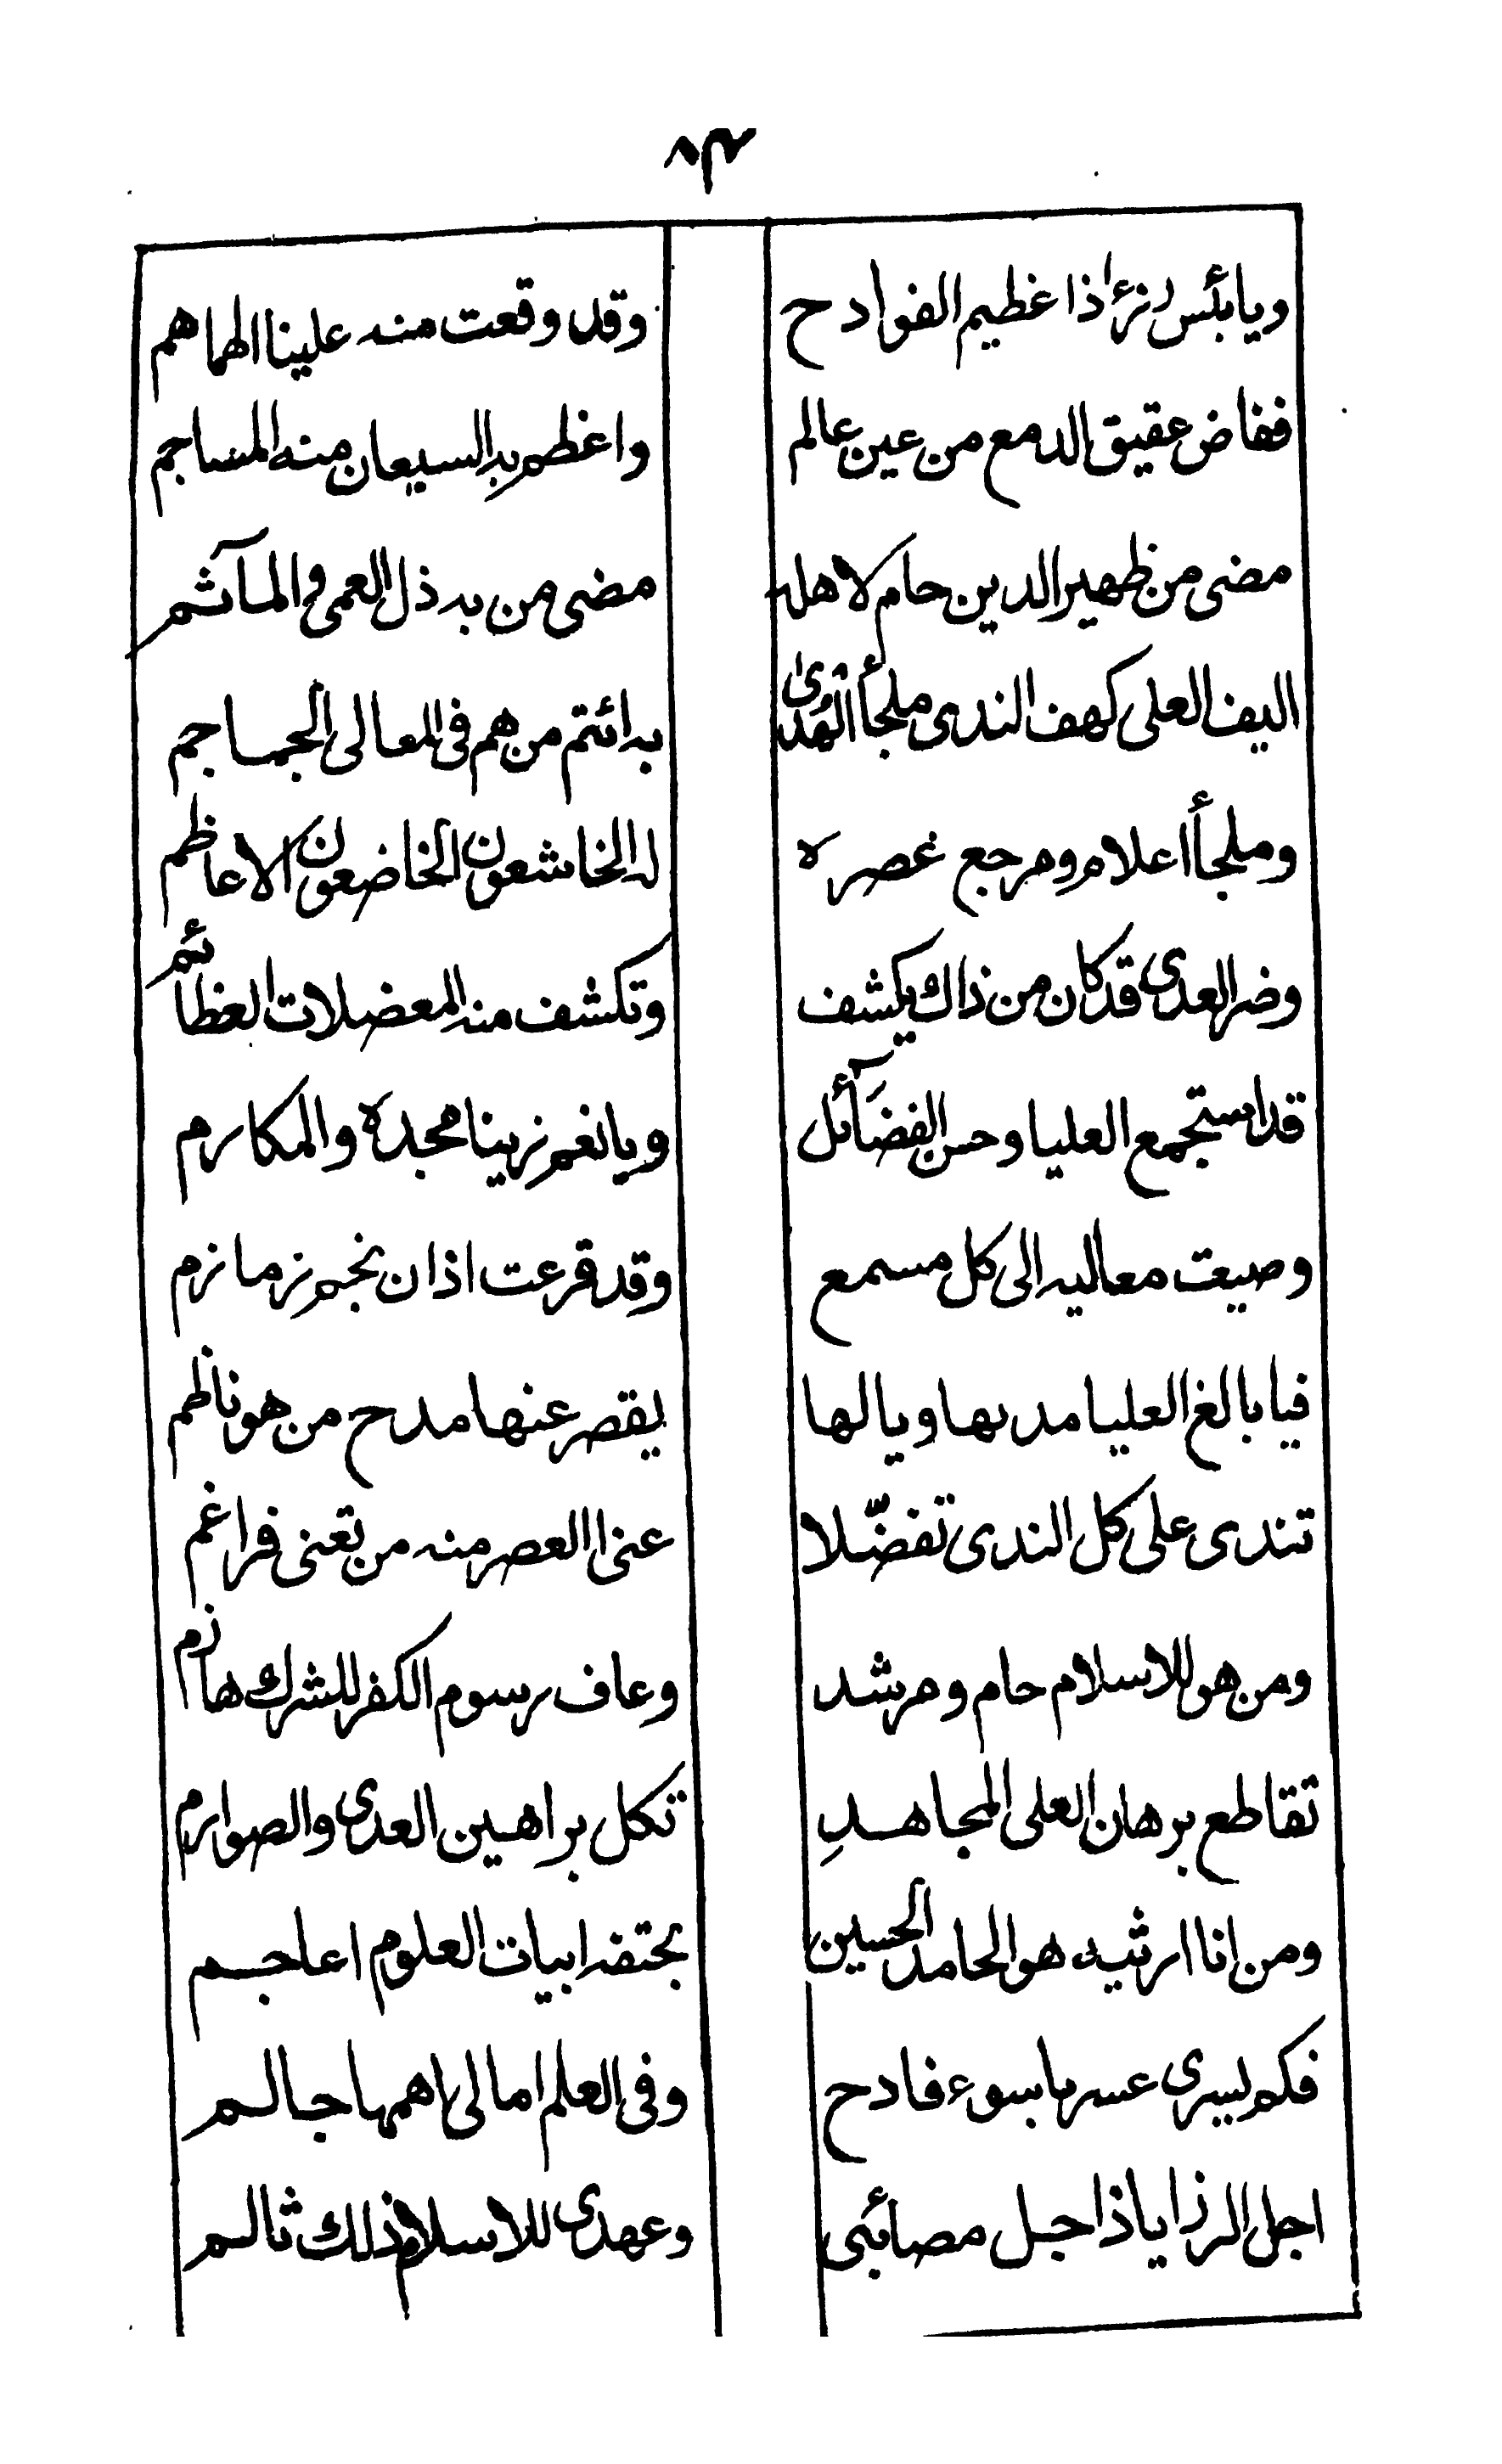 ٨٣
ويا بئس رزء اذا عظيم الفوادح وقد وقعت منه علينا الهماهم
ففاض عقيق الدمع من عين عالم واعظم به السيعان منه المساجم
مضى من ظهير الدين حام لاهله مضى من به ذل العمى والمآثم
اليف العلى كهف الندى ملجأ الهُدى به ائتم من هم فى المعالى الجماجم
وملجأ اعلام ومرجع عصره له الخاشعون الخاضعون الاعاظم
وضر العدى قد كان من ذاك يكشف وتكشف منه المعضلات العظائم
قد استجمع العليا وحسن الفضآئل ويا نعم زينا مجده والمكارم
وصيت معاليه الى كل مسمع وقد قرعت اذان نجم زمازم
فيا بالغ العليا مديها ويا لها يقصر عنها مدح من هو ناظم
تندى على كل الندى تفضّلا عنى العصر منه من تعنى فراغم
ومن هو للاسلام حام ومرشد وعاف رسوم الكفر للشرك هازم
تقاطع برهان العلى المجاهدِ تكل براهين العدى والصوارم
ومن انا ارثيه هو الحامد الحسين بحتفه ابيات العلوم اعاجم
فكم ليسرى عسرها سوء فادح وفى العلم امالى اهمها جالم
اجل الرزايا ذا جل مصائبى وعهدى للاسلام ذلك ثالم